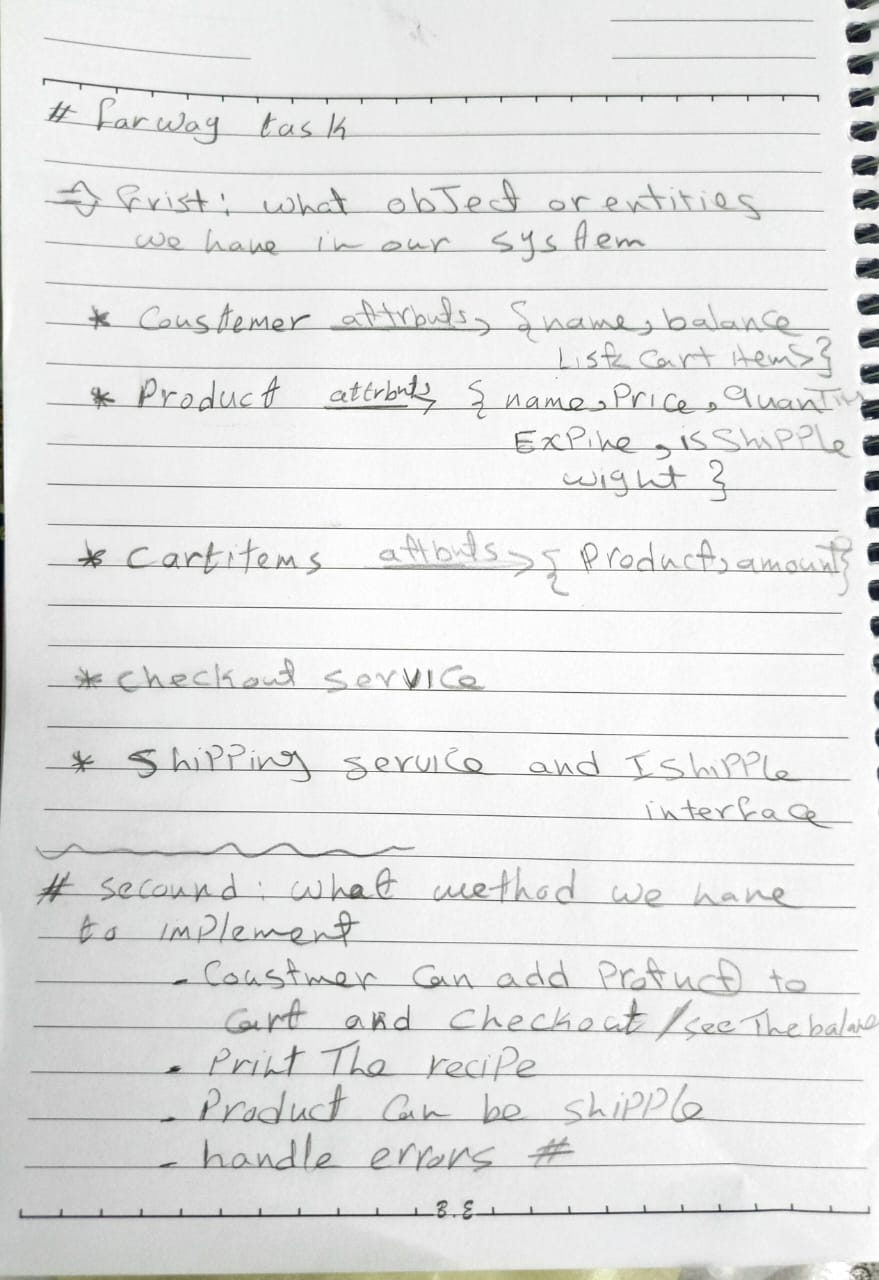 # farway task
=> Frist: what object or entities
we have in our system
* Coustemer attrbuts> {name, balance
List< Cart items>}
* Product attrbuts> { name, Price, Quantity
Expire, isShipple
wight }
* Cartitems attbuts> { Product, amount}
* checkout service
* Shipping service and IShipple
interface
# secound: what method we have
to implement
- Coustmer can add Product to
Cart and checkout /see The balance
- Print The recipe
- Product can be shipple
- handle errors #
B.E